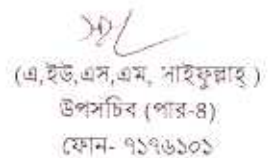 (এ,ইউ,এস,এম, সাইফুল্লাহ্ )
উপসচিব (পার-৪)
ফোন- ৭১৭৬১০১